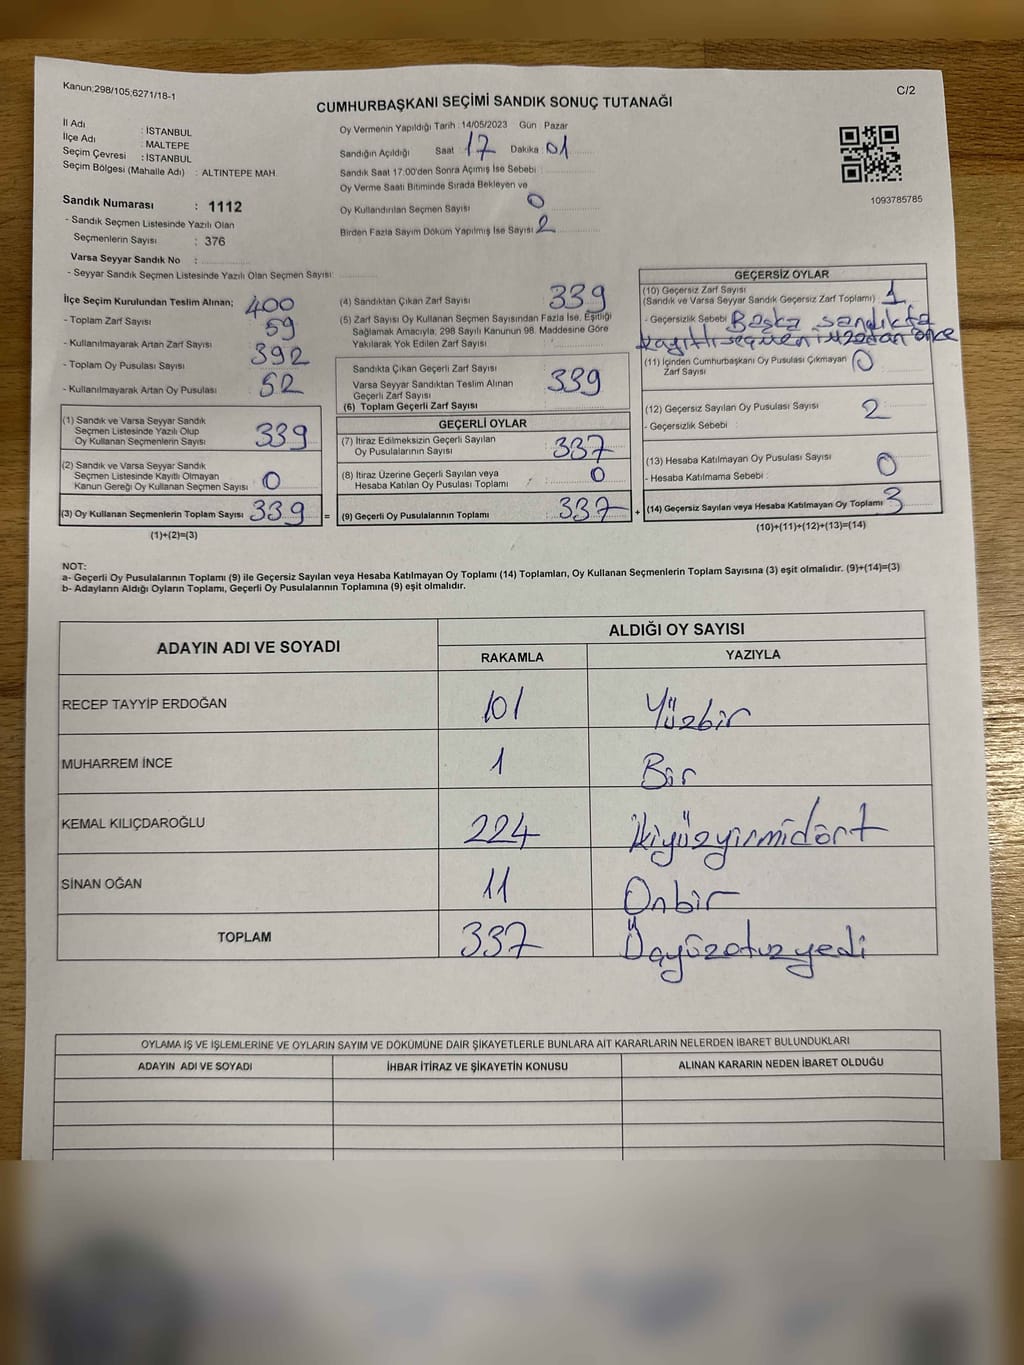 Kanun:298/105,6271/18-1
C/2
CUMHURBAŞKANI SEÇİMİ SANDIK SONUÇ TUTANAĞI
İl Adı : İSTANBUL
İlçe Adı : MALTEPE
Seçim Çevresi : İSTANBUL
Seçim Bölgesi (Mahalle Adı) : ALTINTEPE MAH.
Sandık Numarası : 1112
- Sandık Seçmen Listesinde Yazılı Olan
Seçmenlerin Sayısı : 376
Varsa Seyyar Sandık No :
- Seyyar Sandık Seçmen Listesinde Yazılı Olan Seçmen Sayısı:
Oy Vermenin Yapıldığı Tarih : 14/05/2023 Gün : Pazar
Sandığın Açıldığı Saat : 17 Dakika : 01
Sandık Saat 17:00'den Sonra Açılmış İse Sebebi :
Oy Verme Saati Bitiminde Sırada Bekleyen ve
Oy Kullandırılan Seçmen Sayısı 0
Birden Fazla Sayım Döküm Yapılmış İse Sayısı 2
1093785785
İlçe Seçim Kurulundan Teslim Alınan;
- Toplam Zarf Sayısı 400
- Kullanılmayarak Artan Zarf Sayısı 59
- Toplam Oy Pusulası Sayısı 392
- Kullanılmayarak Artan Oy Pusulası 52
(1) Sandık ve Varsa Seyyar Sandık
Seçmen Listesinde Yazılı Olup
Oy Kullanan Seçmenlerin Sayısı 339
(2) Sandık ve Varsa Seyyar Sandık
Seçmen Listesinde Kayıtlı Olmayan
Kanun Gereği Oy Kullanan Seçmen Sayısı 0
(3) Oy Kullanan Seçmenlerin Toplam Sayısı 339
(1)+(2)=(3)
=
(4) Sandıktan Çıkan Zarf Sayısı : 339
(5) Zarf Sayısı Oy Kullanan Seçmen Sayısından Fazla İse, Eşitliği
Sağlamak Amacıyla, 298 Sayılı Kanunun 98. Maddesine Göre
Yakılarak Yok Edilen Zarf Sayısı :
Sandıkta Çıkan Geçerli Zarf Sayısı
Varsa Seyyar Sandıktan Teslim Alınan
Geçerli Zarf Sayısı
(6) Toplam Geçerli Zarf Sayısı 339
GEÇERLİ OYLAR
(7) İtiraz Edilmeksizin Geçerli Sayılan
Oy Pusulalarının Sayısı : 337
(8) İtiraz Üzerine Geçerli Sayılan veya
Hesaba Katılan Oy Pusulası Toplamı : 0
(9) Geçerli Oy Pusulalarının Toplamı : 337
+
GEÇERSİZ OYLAR
(10) Geçersiz Zarf Sayısı
(Sandık ve Varsa Seyyar Sandık Geçersiz Zarf Toplamı) : 1
- Geçersizlik Sebebi : Başka sandıkta
kayıtlı seçmenin önce
(11) İçinden Cumhurbaşkanı Oy Pusulası Çıkmayan
Zarf Sayısı : 0
(12) Geçersiz Sayılan Oy Pusulası Sayısı : 2
- Geçersizlik Sebebi :
(13) Hesaba Katılmayan Oy Pusulası Sayısı : 0
- Hesaba Katılmama Sebebi :
(14) Geçersiz Sayılan veya Hesaba Katılmayan Oy Toplamı : 3
(10)+(11)+(12)+(13)=(14)
NOT:
a- Geçerli Oy Pusulalarının Toplamı (9) ile Geçersiz Sayılan veya Hesaba Katılmayan Oy Toplamı (14) Toplamları, Oy Kullanan Seçmenlerin Toplam Sayısına (3) eşit olmalıdır. (9)+(14)=(3)
b- Adayların Aldığı Oyların Toplamı, Geçerli Oy Pusulalarının Toplamına (9) eşit olmalıdır.
ADAYIN ADI VE SOYADI
ALDIĞI OY SAYISI
RAKAMLA YAZIYLA
RECEP TAYYİP ERDOĞAN 101 Yüzbir
MUHARREM İNCE 1 Bir
KEMAL KILIÇDAROĞLU 224 ikiyüzyirmidört
SİNAN OĞAN 11 Onbir
TOPLAM 337 Üçyüzotuzyedi
OYLAMA İŞ VE İŞLEMLERİNE VE OYLARIN SAYIM VE DÖKÜMÜNE DAİR ŞİKAYETLERLE BUNLARA AİT KARARLARIN NELERDEN İBARET BULUNDUKLARI
ADAYIN ADI VE SOYADI İHBAR İTİRAZ VE ŞİKAYETİN KONUSU ALINAN KARARIN NEDEN İBARET OLDUĞU